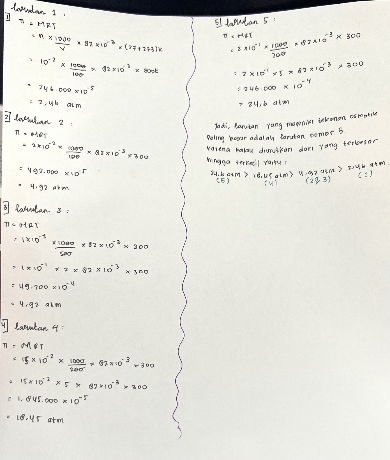 1] larutan 1 :
π = MRT
= n × 1000/V × 82×10⁻³ × (27+273)K
= 10⁻² × 1000/100 × 82×10⁻³ × 300K
= 246.000 × 10⁻⁵
= 2,46 atm
2] larutan 2 :
π = MRT
= 2×10⁻² × 1000/100 × 82×10⁻³ × 300
= 492.000 × 10⁻⁵
= 4,92 atm
3] larutan 3 :
π = MRT
= 1×10⁻¹ × 1000/500 × 82×10⁻³ × 300
= 1×10⁻¹ × 2 × 82×10⁻³ × 300
= 49.200 × 10⁻⁴
= 4,92 atm
4] larutan 4 :
π = MRT
= 15×10⁻² × 1000/200 × 82×10⁻³ × 300
= 15×10⁻² × 5 × 82×10⁻³ × 300
= 1.845.000 × 10⁻⁵
= 18,45 atm
5] larutan 5 :
π = MRT
= 2×10⁻¹ × 1000/200 × 82×10⁻³ × 300
= 2×10⁻¹ × 5 × 82×10⁻³ × 300
= 246.000 × 10⁻⁴
= 24,6 atm
Jadi, larutan yang memiliki tekanan osmotik
paling besar adalah larutan nomor 5.
karena kalau diurutkan dari yang terbesar
hingga terkecil yaitu :
24,6 atm > 18,45 atm > 4,92 atm > 2,46 atm
(5) (4) (2&3) (1)